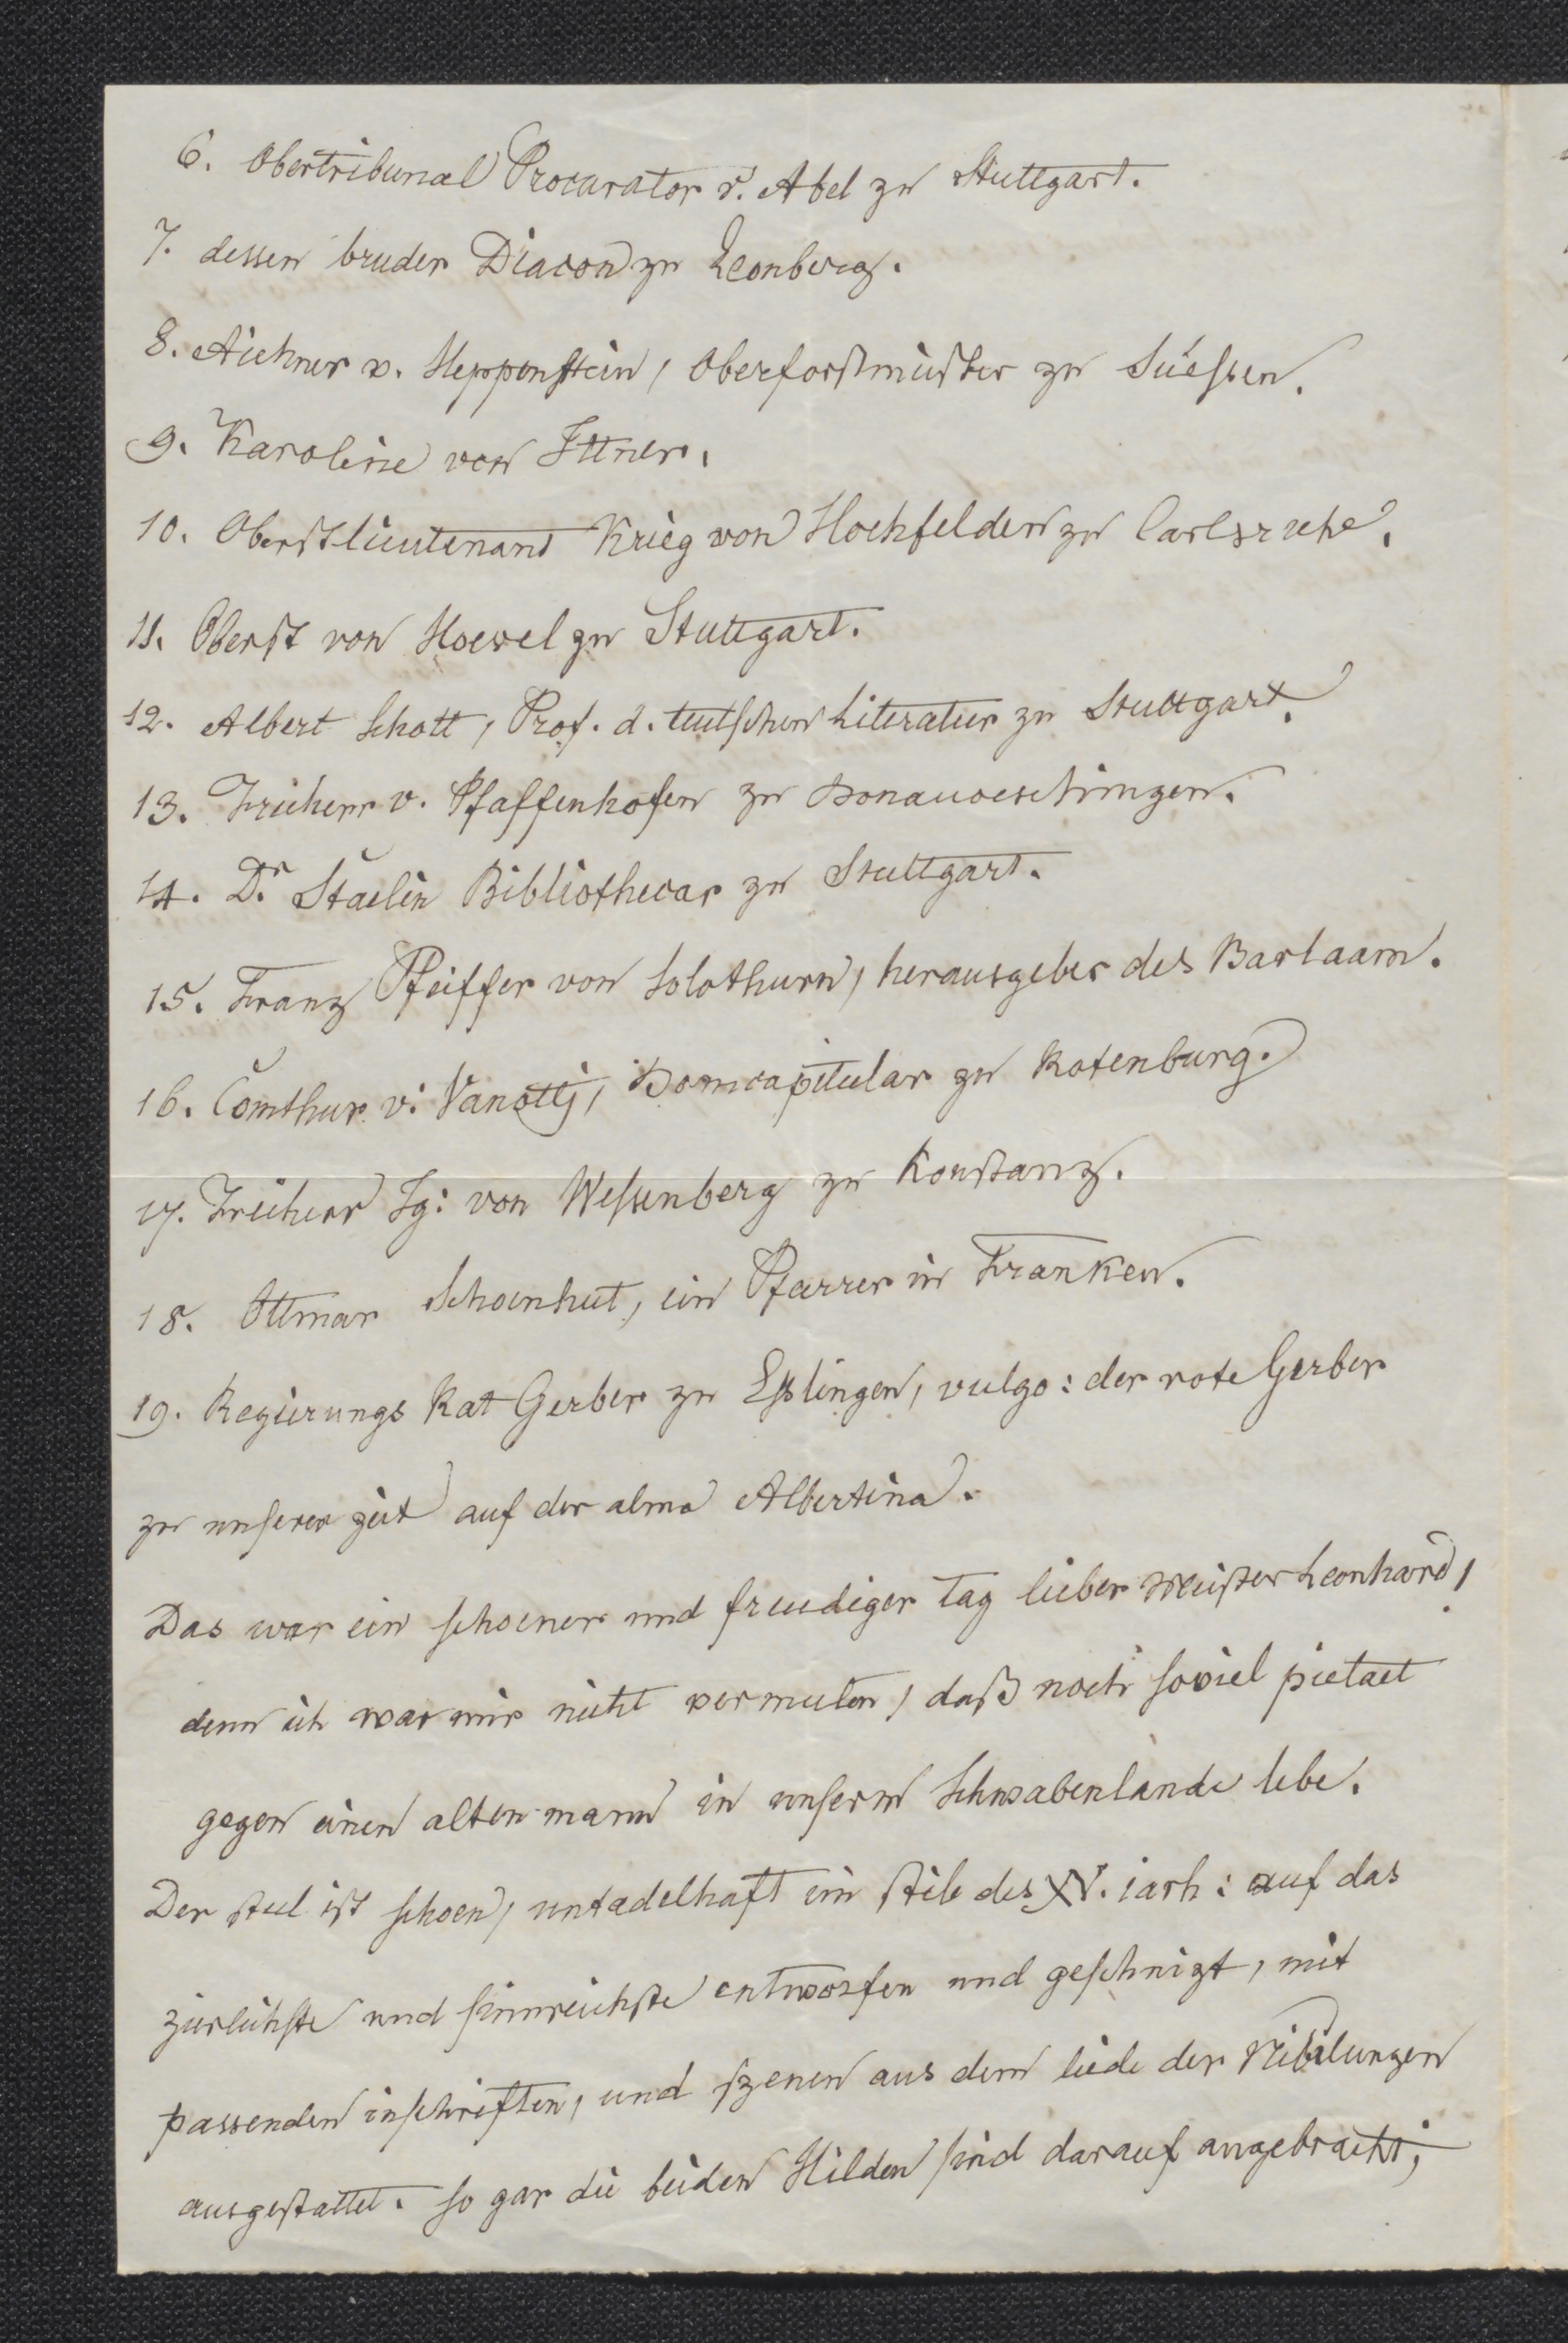 6. Obertribunal Procurator v. Abel zu Stuttgart.
7. dessen bruder Diacon zu Leonberg.
8. Aichner v. Heppenstein, Oberforstmeister zu Süessen.
9. Karoline von Ittner.
10. Oberstlieutenant Krieg von Hochfelden zu Carlsruhe.
11. Oberst von Hoevel zu Stuttgart.
12. Albert Schott, Prof. d. teutschen Literatur zu Stuttgart.
13. Freiherr v. Pfaffenhofen zu Donauoeschingen.
14. Dr. Staelin Bibliothecar zu Stuttgart.
15. Franz Pfeiffer von Solothurn, herausgeber des Barlaam.
16. Comthur v. Vanotti, Domcapitular zu Rotenburg.
17. Freiherr Ig: von Wessenberg zu Konstanz.
18. Ottmar Schoenhut, ein Pfarrer in Franken.
19. Regierungs Rat Gerber zu Esslingen, vulgo: der rote Gerber
zu unserer zeit auf der alma Albertina.
Das war ein schoener und freudiger tag lieber Meister Leonhard!
denn ich war mir nicht vermuten, daß noch soviel pietaet
gegen einen alten mann in unserm Schwabenlande lebe.
Der stul ist schoen, untadelhaft im stile des XV. iarh: auf das
zierlichste und sinnreichste entworfen und geschnizt, mit
passenden inschriften, und szenen aus dem liede der Nibilungen
ausgestattet. so gar die beiden Hilden sind darauf angebracht;